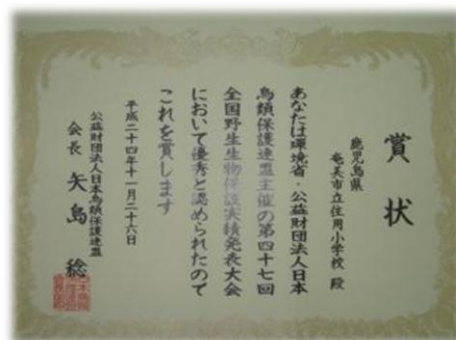 賞状
鹿児島県
奄美市立住用小学校 殿
あなたは環境省・公益財団法人日本
鳥類保護連盟主催の第四十七回
全国野生生物保護実績発表大会
において優秀と認められたので
これを賞します
平成二十四年十一月二十六日
公益財団法人日本鳥類保護連盟
会長 矢島 稔